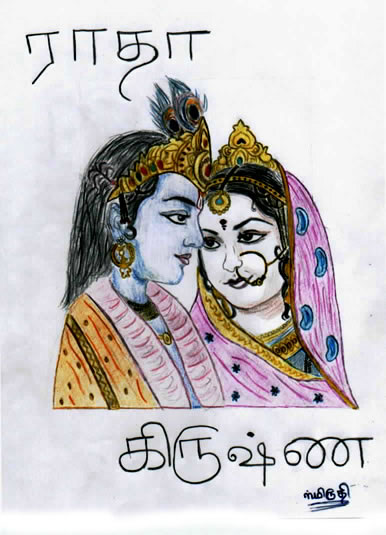 ராதா
கிருஷ்ண
ஸ்மிருதி